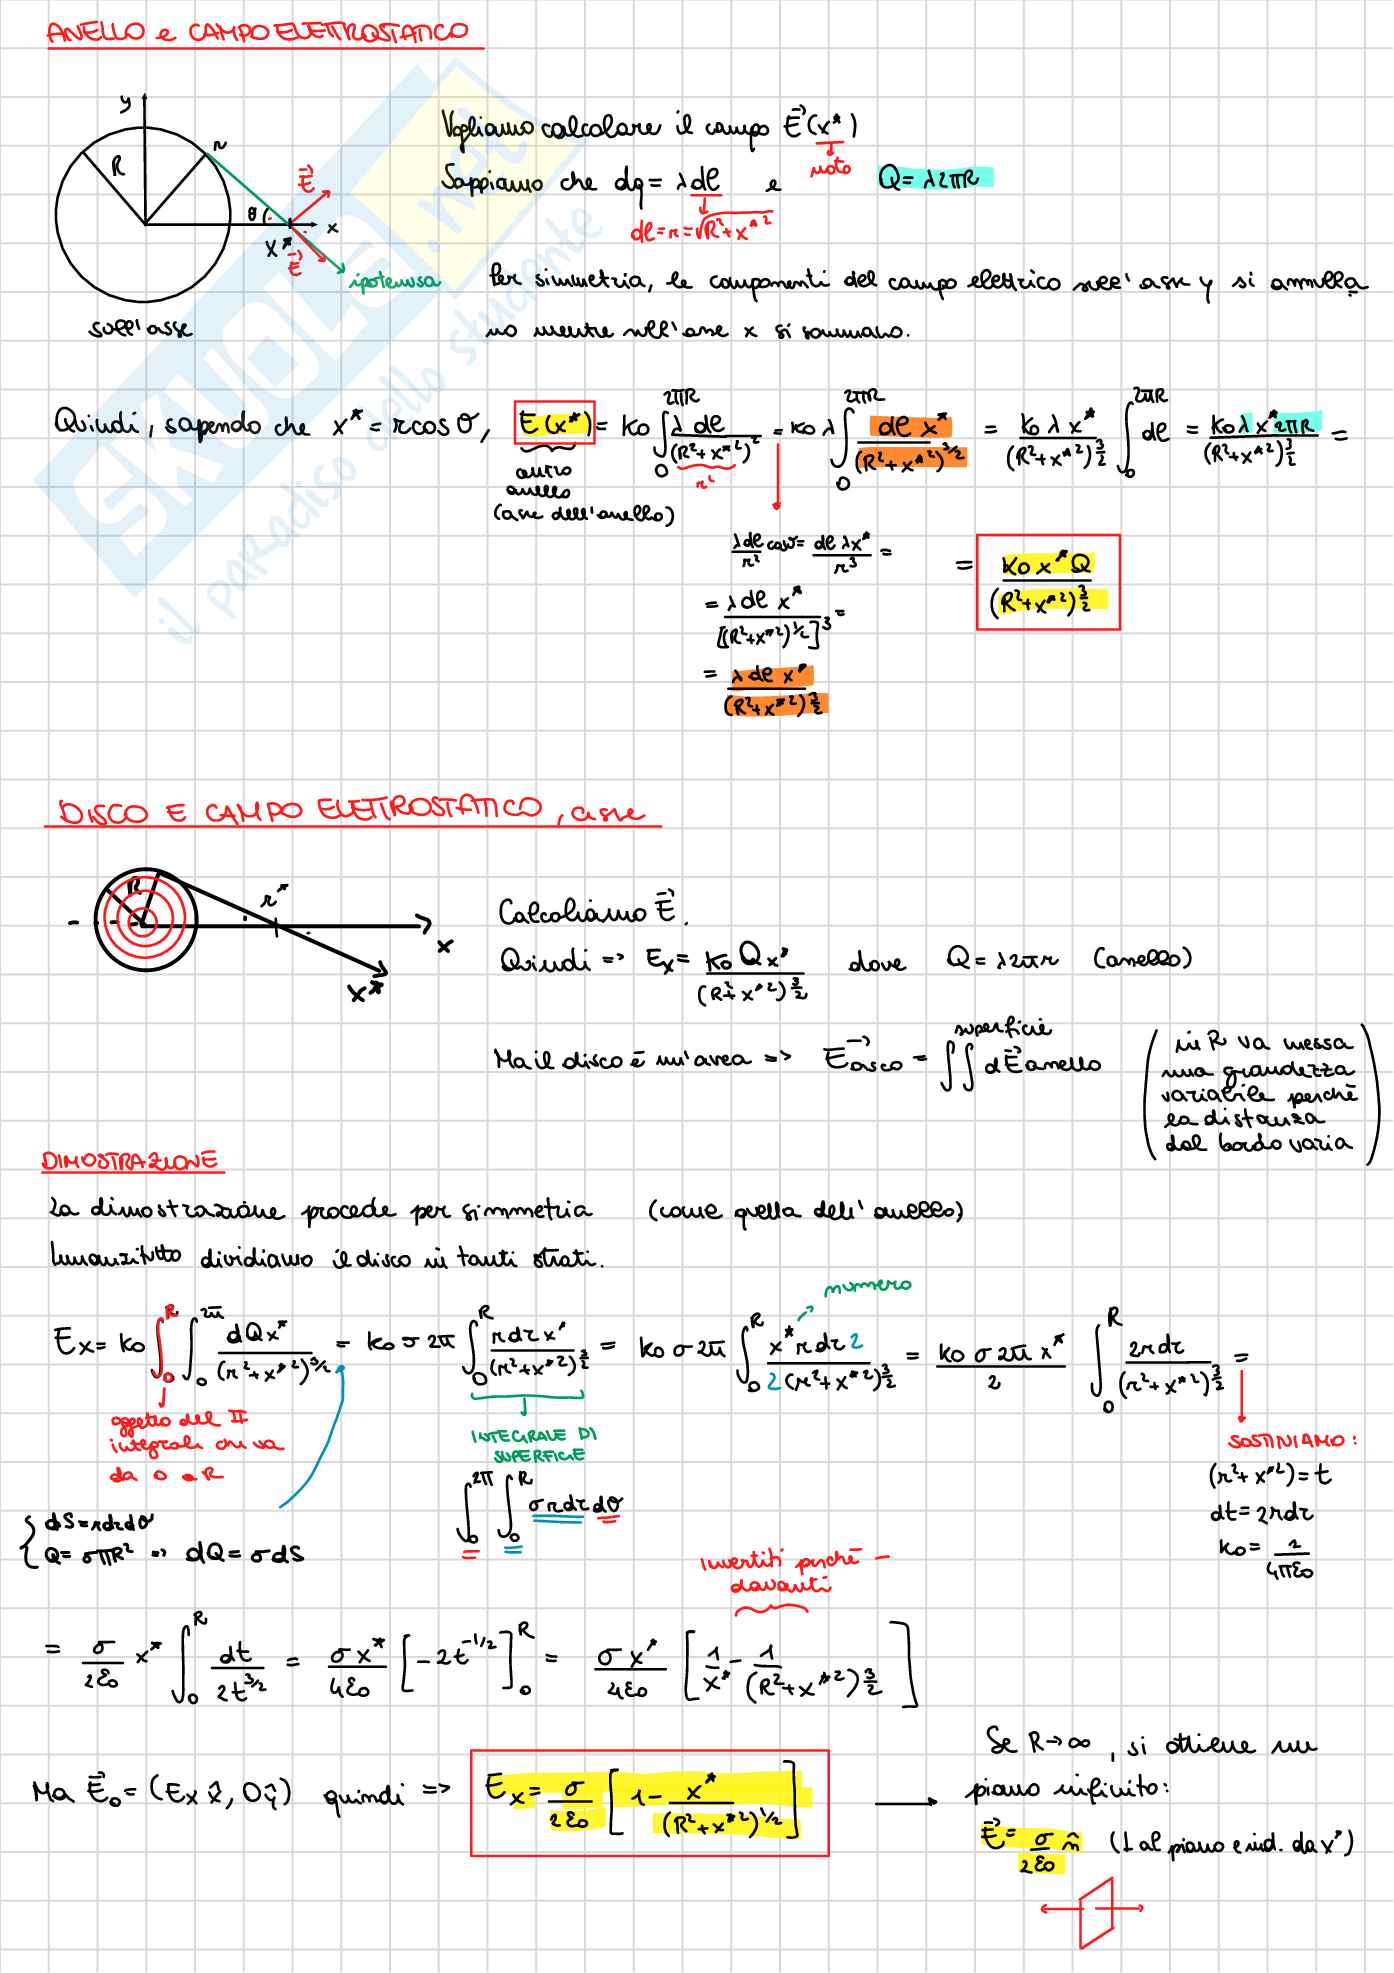 ANELLO e CAMPO ELETTROSTATICO
y
R
r
E⃗
θ
x
x*
E⃗
ipotenusa
sull'asse
Vogliamo calcolare il campo E⃗(x*)
noto
Sappiamo che dq = λdl e Q = λ2πR
dl = r = √(R²+x*²)
Per simmetria, le componenti del campo elettrico sull'asse y si annulla
no mentre sull'asse x si sommano.
Quindi, sapendo che x* = r cos θ, E(x*) = K₀ ∫₀^{2πR} λ dl/(R²+x*²)² = K₀ λ ∫₀^{2πR} dl x*/(R²+x*²)^{3/2} = K₀ λ x*/(R²+x*²)^{3/2} ∫₀^{2πR} dl = K₀ λ x* 2πR/(R²+x*²)^{3/2} =
r²
anello
(asse dell'anello)
λdl/r² cosθ = dl λx*/r³ =
= K₀ x* Q/(R²+x*²)^{3/2}
= λ dl x*/[(R²+x*²)^{1/2}]³ =
= λ dl x*/(R²+x*²)^{3/2}
DISCO E CAMPO ELETTROSTATICO, asse
R
r*
x
x*
Calcoliamo E⃗.
Quindi => Eₓ = K₀ Q x*/(R²+x*²)^{3/2} dove Q = λ2πr (anello)
Ma il disco è un'area => E⃗disco = ∫∫ superficie dE⃗ anello
(in R va messa
una grandezza
variabile perché
la distanza
dal bordo varia)
DIMOSTRAZIONE
La dimostrazione procede per simmetria (come quella dell'anello)
Innanzitutto dividiamo il disco in tanti strati.
numero
Eₓ = K₀ ∫₀^R ∫₀^{2π} dQx*/(r²+x*²)^{3/2} = K₀ σ 2π ∫₀^R r dr x*/(r²+x*²)^{3/2} = K₀ σ 2π ∫₀^R x* r dr 2/2(r²+x*²)^{3/2} = K₀ σ 2π x*/2 ∫₀^R 2r dr/(r²+x*²)^{3/2} =
oggetto del II
integrale che va
da 0 a R
INTEGRALE DI
SUPERFICIE
∫₀^{2π} ∫₀^R σ r dr dθ
SOSTINIAMO:
(r²+x*²) = t
dt = 2r dr
K₀ = 1/4πε₀
{dS = r dr dθ
Q = σπR² => dQ = σdS
Invertiti perché −
davanti
= σ/2ε₀ x* ∫₀^R dt/2t^{3/2} = σx*/4ε₀ [−2t^{−1/2}]₀^R = σ x*/4ε₀ [1/x* − 1/(R²+x*²)^{3/2}]
Ma E⃗₀ = (Eₓ x̂, 0ŷ) quindi => Eₓ = σ/2ε₀ [1 − x*/(R²+x*²)^{1/2}]
Se R→∞, si ottiene un
piano infinito:
E⃗ = σ/2ε₀ n̂ (⊥ al piano e ind. da x*)
SKUOLA.net
il paradiso dello studente